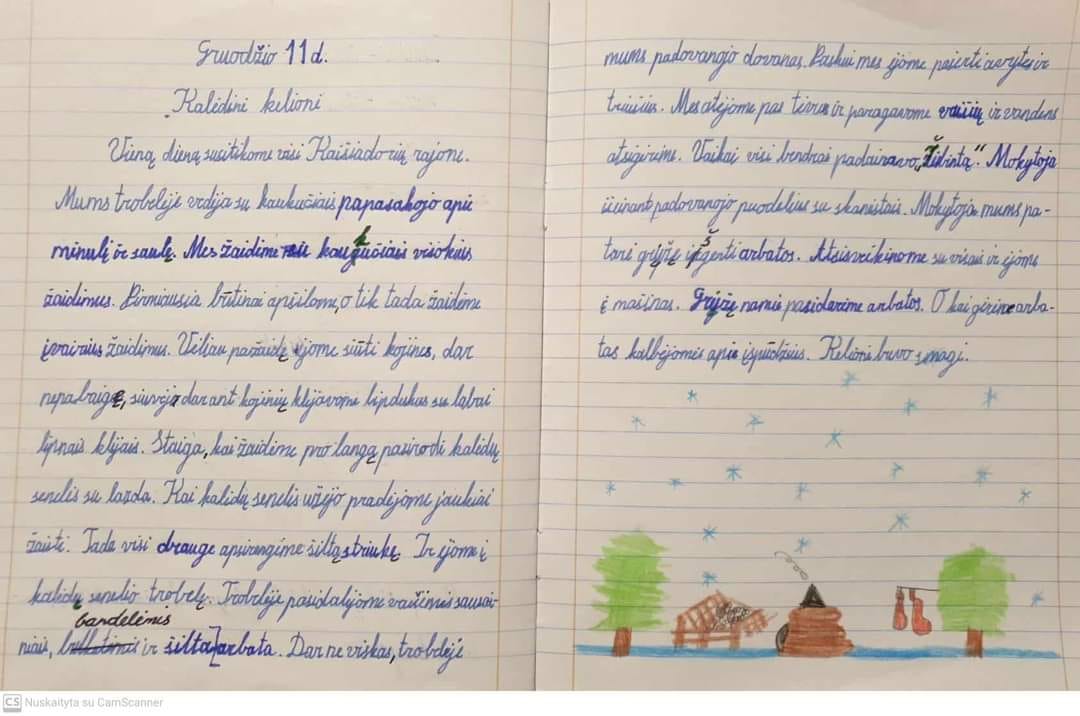 Gruodžio 11 d.
Kalėdinė kelionė
Vieną dieną susitikome visi Kaišiadorių rajone.
Mums trobelėje vedėja su kaukučiais papasakojo apie
mėnulį ir saulę. Mes žaidėme su kaukučiais visokius
žaidimus. Pirmiausia būtinai apšilome, o tik tada žaidėme
įvairius žaidimus. Vėliau pažaidę ėjome siūti kojines, dar
nepabaigę, siuvėję dar ant kojinių klijavome lipdukus su labai
lipniais klijais. Staiga, kai žaidėme pro langą pasirodė kalėdų
senelis su lazda. Kai kalėdų senelis užėjo pradėjome jaukiai
žaisti. Tada visi drauge apsirengėme šiltą striukę. Ir ėjome į
kalėdų senelio trobelę. Trobelėje pasidalijome vaišėmis sausai-
bandelėmis
niais, ir šilta arbata. Dar ne viskas, trobelėje
mums padovanojo dovanas. Paskui mes ėjome pašerti avytes ir
triušius. Mes atėjome pas tėvus ir paragavome vaišių ir vandens
atsigėrėme. Vaikai visi bendrai padainavo „Žibintą“. Mokytoja
išeinant padovanojo puodelius su skanėstais. Mokytoja mums pa-
tarė grįžę išgerti arbatos. Atsisveikinome su visais ir ėjome
į mašinas. Grįžę namie pasidarėme arbatos. O kai gėrėme arba-
tas kalbėjomės apie įspūdžius. Kelionė buvo smagi.
CS Nuskaityta su CamScanner